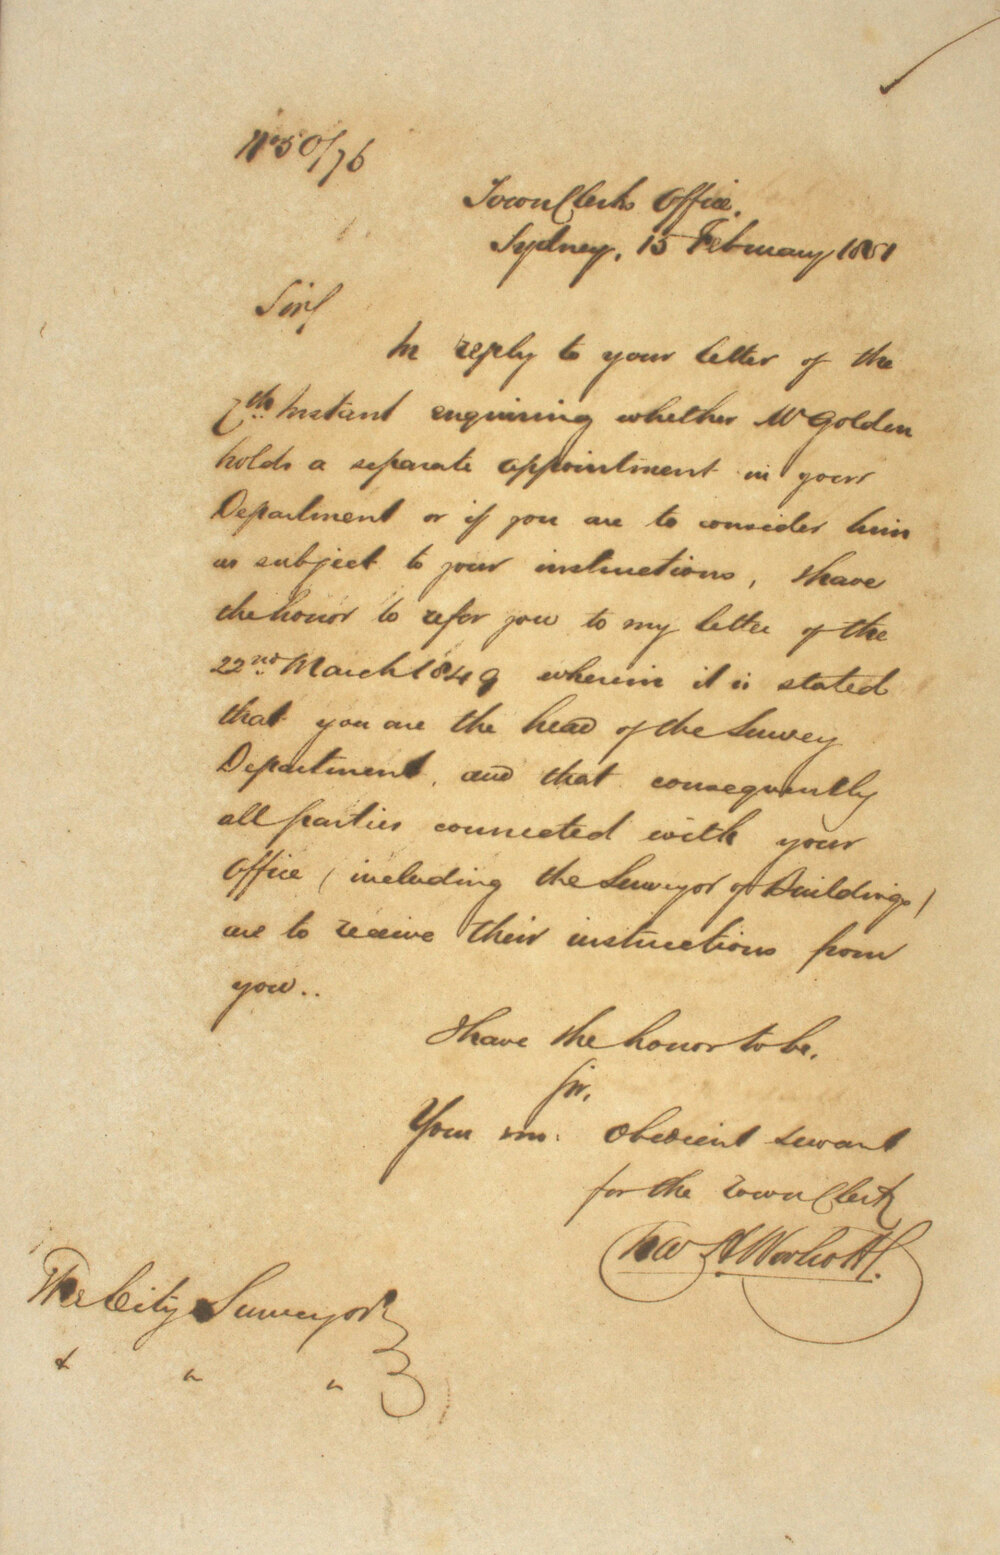 No 50/76
Town Clerks Office.
Sydney, 15 February 1851
Sir,
In reply to your letter of the
7th Instant enquiring whether Mr Golden
holds a separate appointment in your
Department or if you are to consider him
as subject to your instructions, I have
the honor to refer you to my letter of the
22nd March 1849 wherein it is stated
that you are the head of the Survey
Department, and that consequently
all parties connected with your
Office (including the Surveyor of Buildings)
are to receive their instructions from
you..
I have the honor to be,
Sir,
Your mo: obedient servant
for the Town Clerk
The City Surveyor
& " "